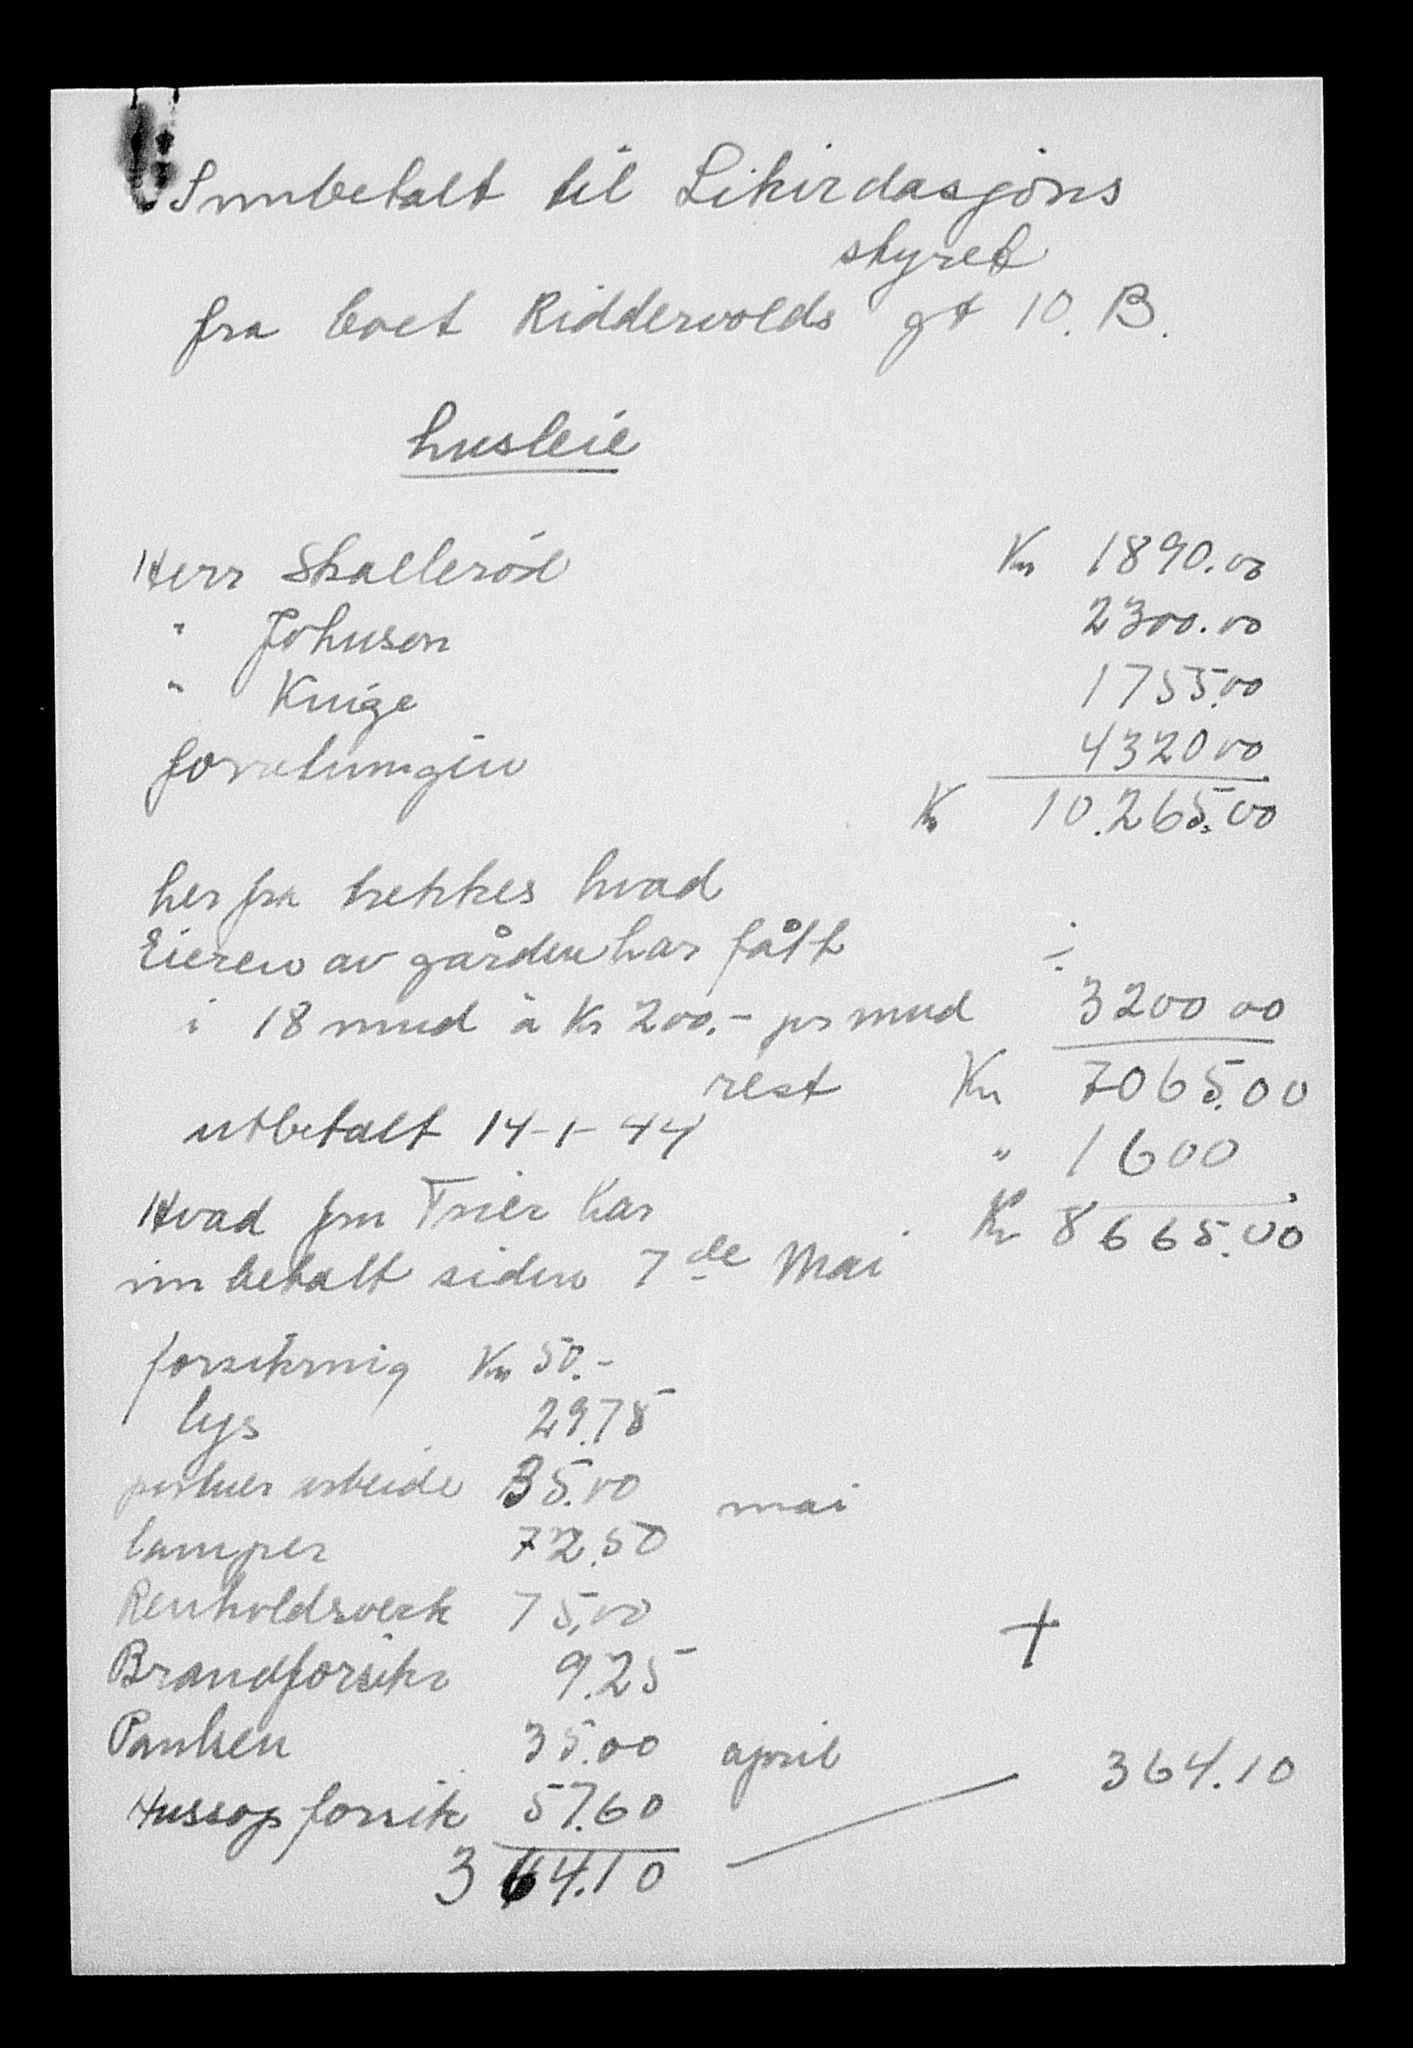 Innbetalt til Likvidasjons
styret
fra boet Riddervolds gt 10. B.
husleie
Herr Skallerød Kr 1890.00
" Johnson 2300.00
" Knige 1755.00
forretningen 4320 00
Kr 10.265.00
her fra trekkes hvad
Eieren av gården har fått ÷
i 18 mnd à Kr 200.- pr mnd 3200 00
rest Kr 7065.00
utbetalt 14-1-44 " 1600
Hvad fru Trier har Kr 8665.00
inn betalt siden 7de Mai
forsikring Kr 50.-
lys 29.75
portner arbeide 35.00 mai
lamper 72.50
Renholdsverk 75,00
Brandforsikr 9.25
Paulsen 35.00 april 364.10
Hussop forsik 57.60
364.10